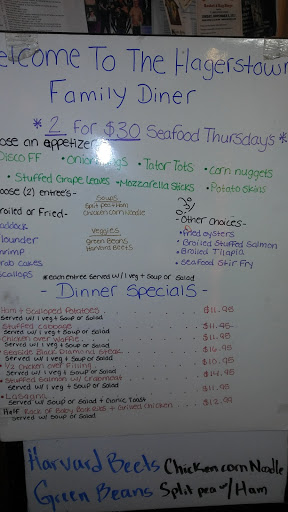 elcome To The Hagerstown
Family Diner
* 2 For $30 Seafood Thursdays *
ose an appetizer
Disco FF • onion rings • Tator Tots • corn nuggets
• Stuffed Grape Leaves • Mozzarella Sticks • Potato Skins
oose (2) entree's -
Soups
Split pea + Ham
Chicken corn Noodle
roiled or Fried -
addock
lounder
hrimp
rab cakes
Scallops
Veggies
Green Beans
Harvard Beets
- Other choices -
• Fried oysters
• Broiled Stuffed Salmon
• Broiled Tilapia
• Seafood Stir Fry
*each entree Served w/ 1 veg + Soup or Salad
- Dinner Specials -
Ham + Scalloped Potatoes $11.95
Served w/ 1 veg + Soup or Salad
Stuffed cabbage $11.95
Served w/ 1 veg + Soup or Salad
Chicken over Waffle $11.95
Served w/ 1 veg + Soup or Salad
Seaside Black Diamond Steak $16.95
Served w/ 1 veg + Soup or Salad
• 1/2 Chicken over Filling $10.95
Served w/ 1 veg + Soup or Salad
• Stuffed Salmon w/ Crabmeat $14.95
Served w/ 1 veg + Soup or Salad
• Lasagna $11.95
Served w/ Soup or Salad + Garlic Toast
Half Rack of Baby Back Ribs + Grilled Chicken $12.99
Served w/ Soup or Salad
Harvard Beets Chicken corn Noodle
Green Beans Split pea w/ Ham